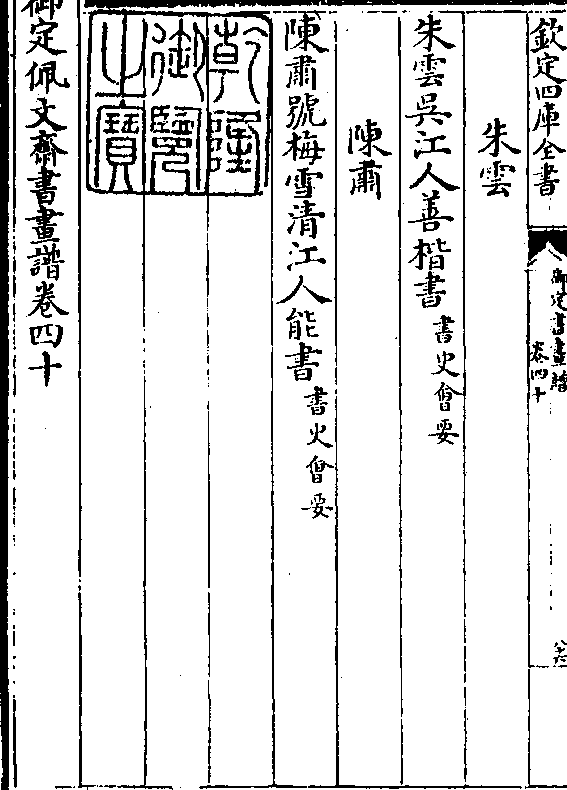 欽定四庫全書
御定書畫譜
卷四十
朱雲
朱雲吳江人善楷書書史會要
陳肅
陳肅號梅雪清江人能書書史會要
乾隆
御覽
之寶
御定佩文齋書畫譜卷四十